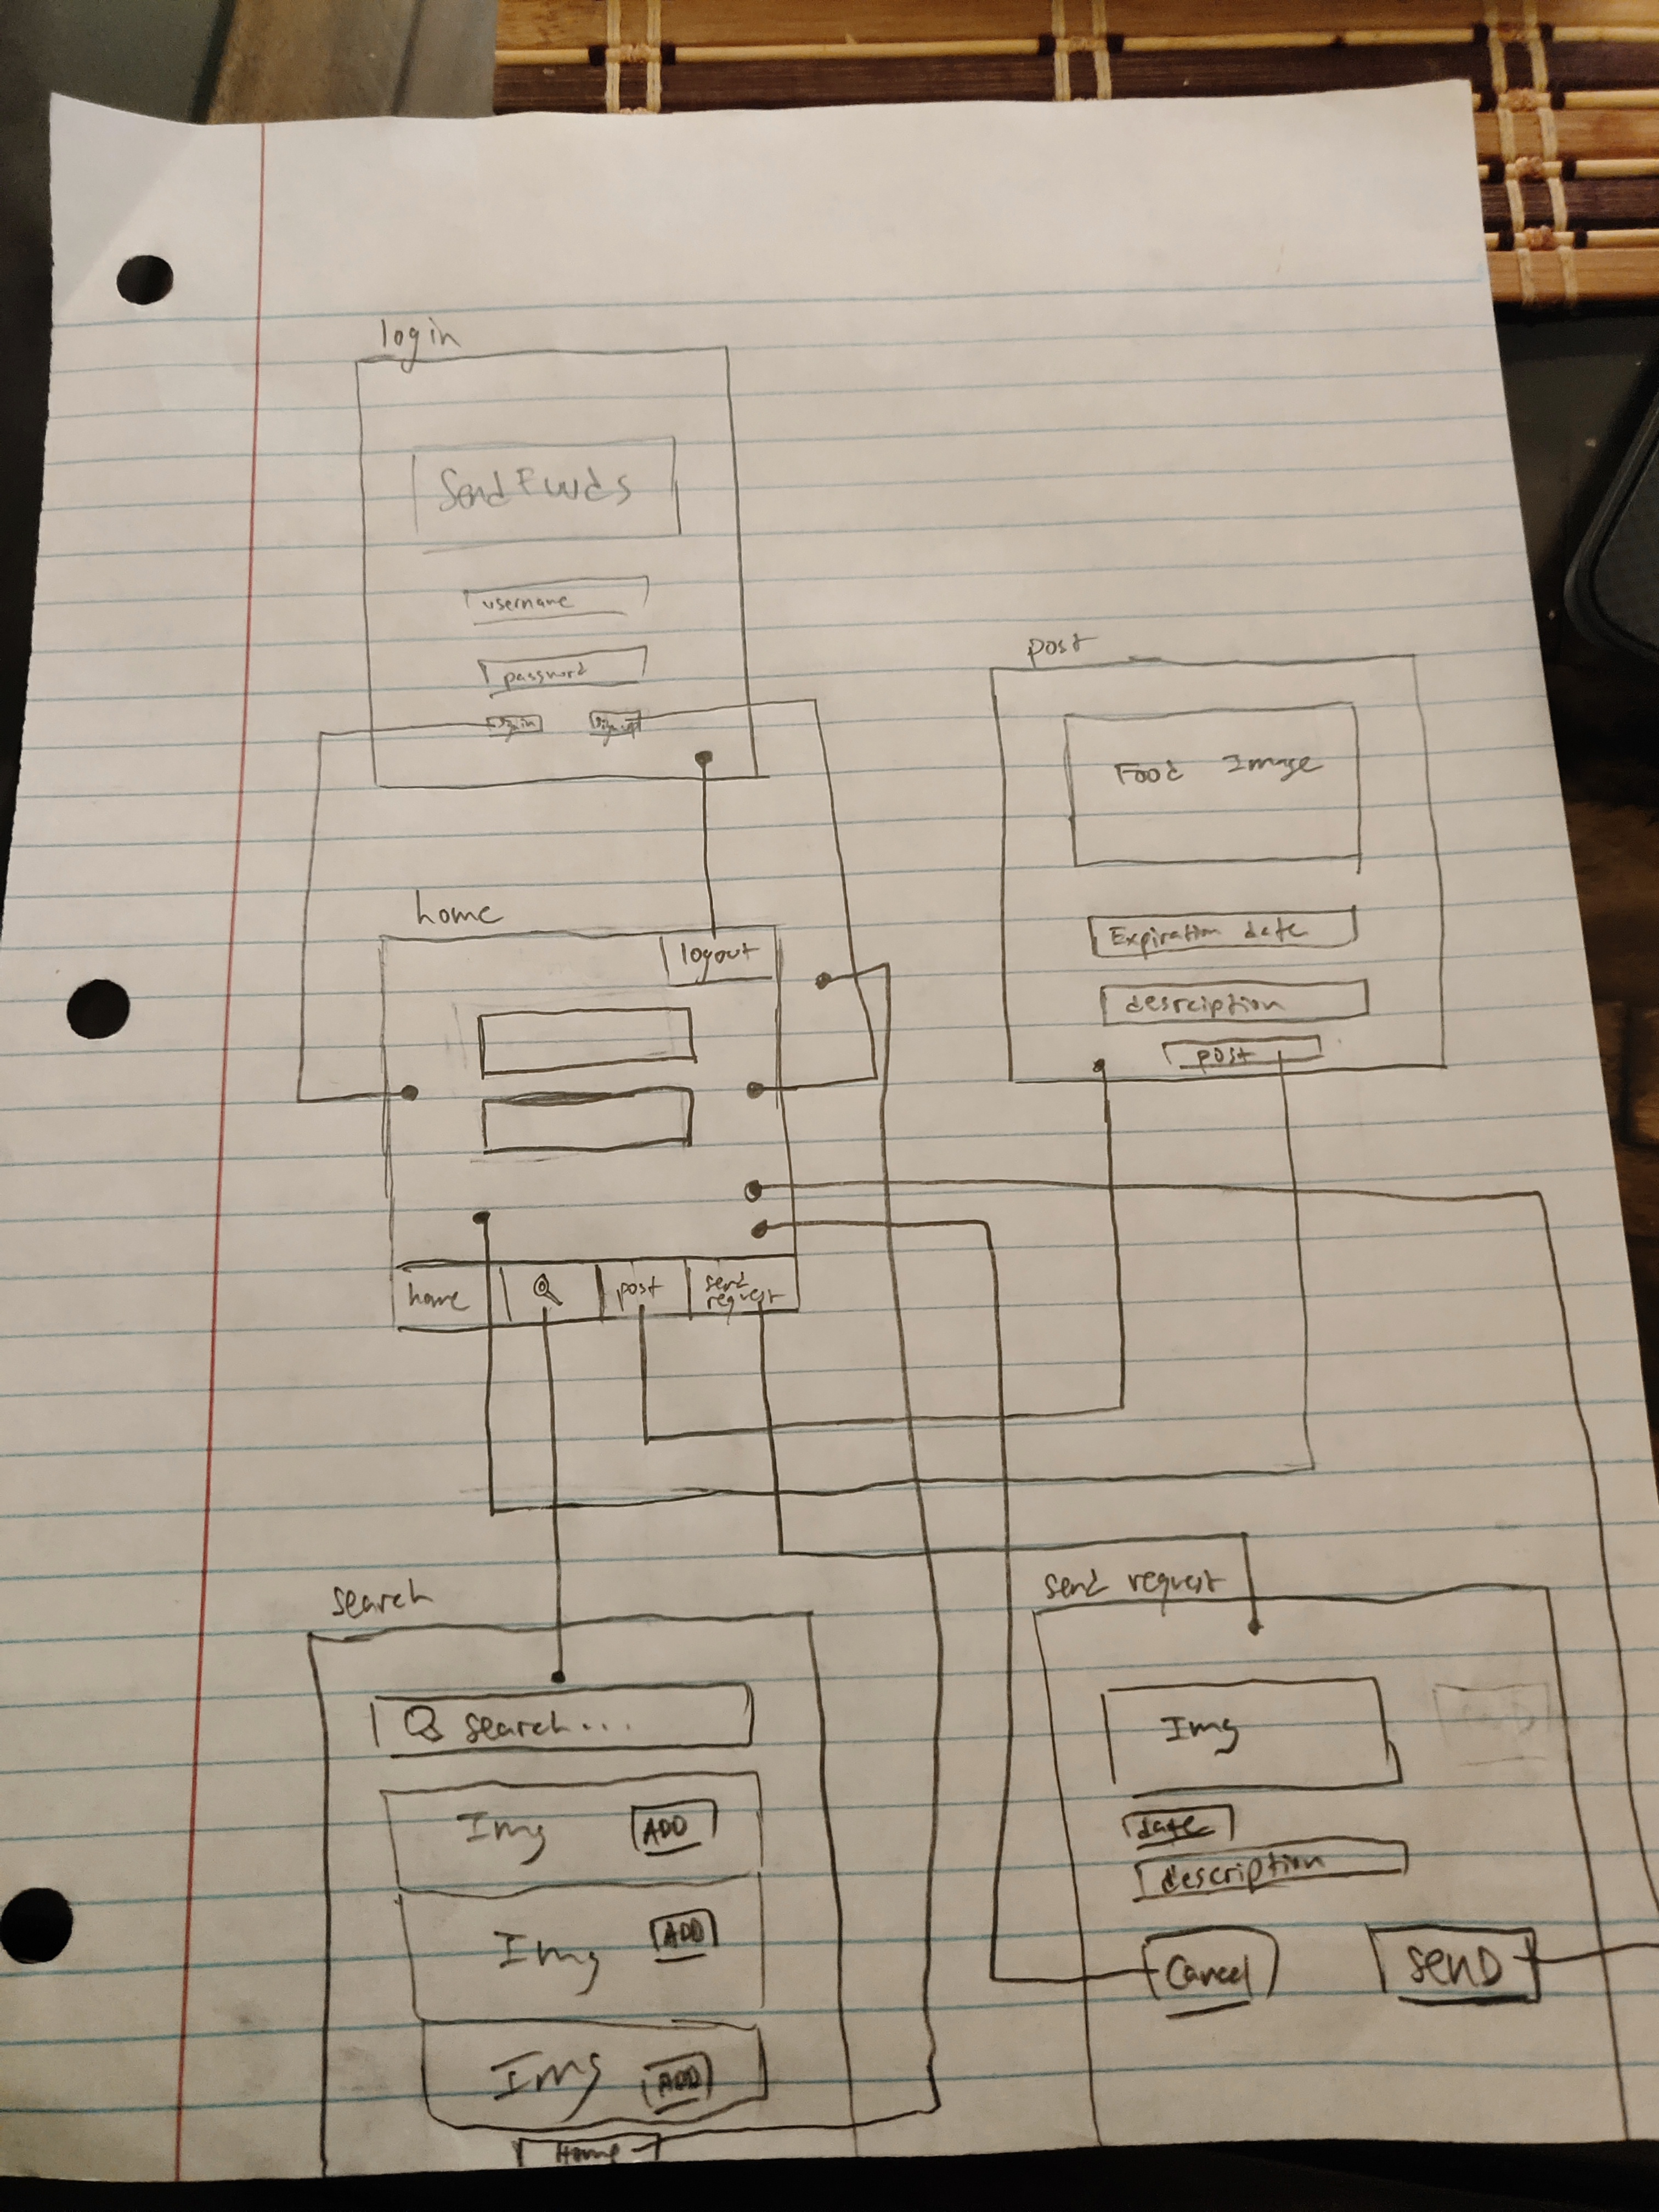 login
username
password
sign in
sign up
post
Food Image
Expiration date
desrciption
post
home
logout
home
post
send
request
search
search...
Img
ADD
Img
ADD
Img
ADD
Home
send request
Img
date
description
Cancel
SEND